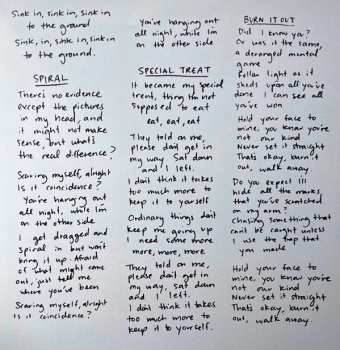 Sink in, sink in, sink in
to the ground
Sink, in, sink in, sink in
to the ground.
SPIRAL
There's no evidence
except the pictures
in my head, and
it might not make
sense, but what's
the real difference?
Scaring myself, alright
Is it coincidence?
You're hanging out
all night, while I'm
on the other side
I get dragged and
Spiral in but wait
bring it up. Afraid
of what might come
out, just tell me
where you've been
Scaring myself, alright
Is it coincidence?
You're hanging out
all night, while I'm
on the other side
SPECIAL TREAT
It became my special
treat, thing I'm not
supposed to eat
eat, eat, eat
They told on me,
please don't get in
my way. Sat down
and I left.
I don't think it takes
too much more to
keep it to yourself
Ordinary things don't
keep me going up
I need some more
more, more, more
They told on me,
please don't get in
my way, sat down
and I left.
I don't think it takes
too much more to
keep it to yourself.
BURN IT OUT
Did I know ya?
Or was it the same,
a deranged mental
game
Dollar light as it
sheds upon all you've
done I can see all
you've won
Hold your face to
mine, you know you're
not our kind
Never set it straight
Thats okay, burn it
out, walk away
Do you expect
hide all the marks,
that you've scratched
on my arm?
Chasing something that
can't be caught unless
I use the trap that
you made
Hold your face to
mine, you know you're
not our kind
Never set it straight
Thats okay, burn it
out, walk away.